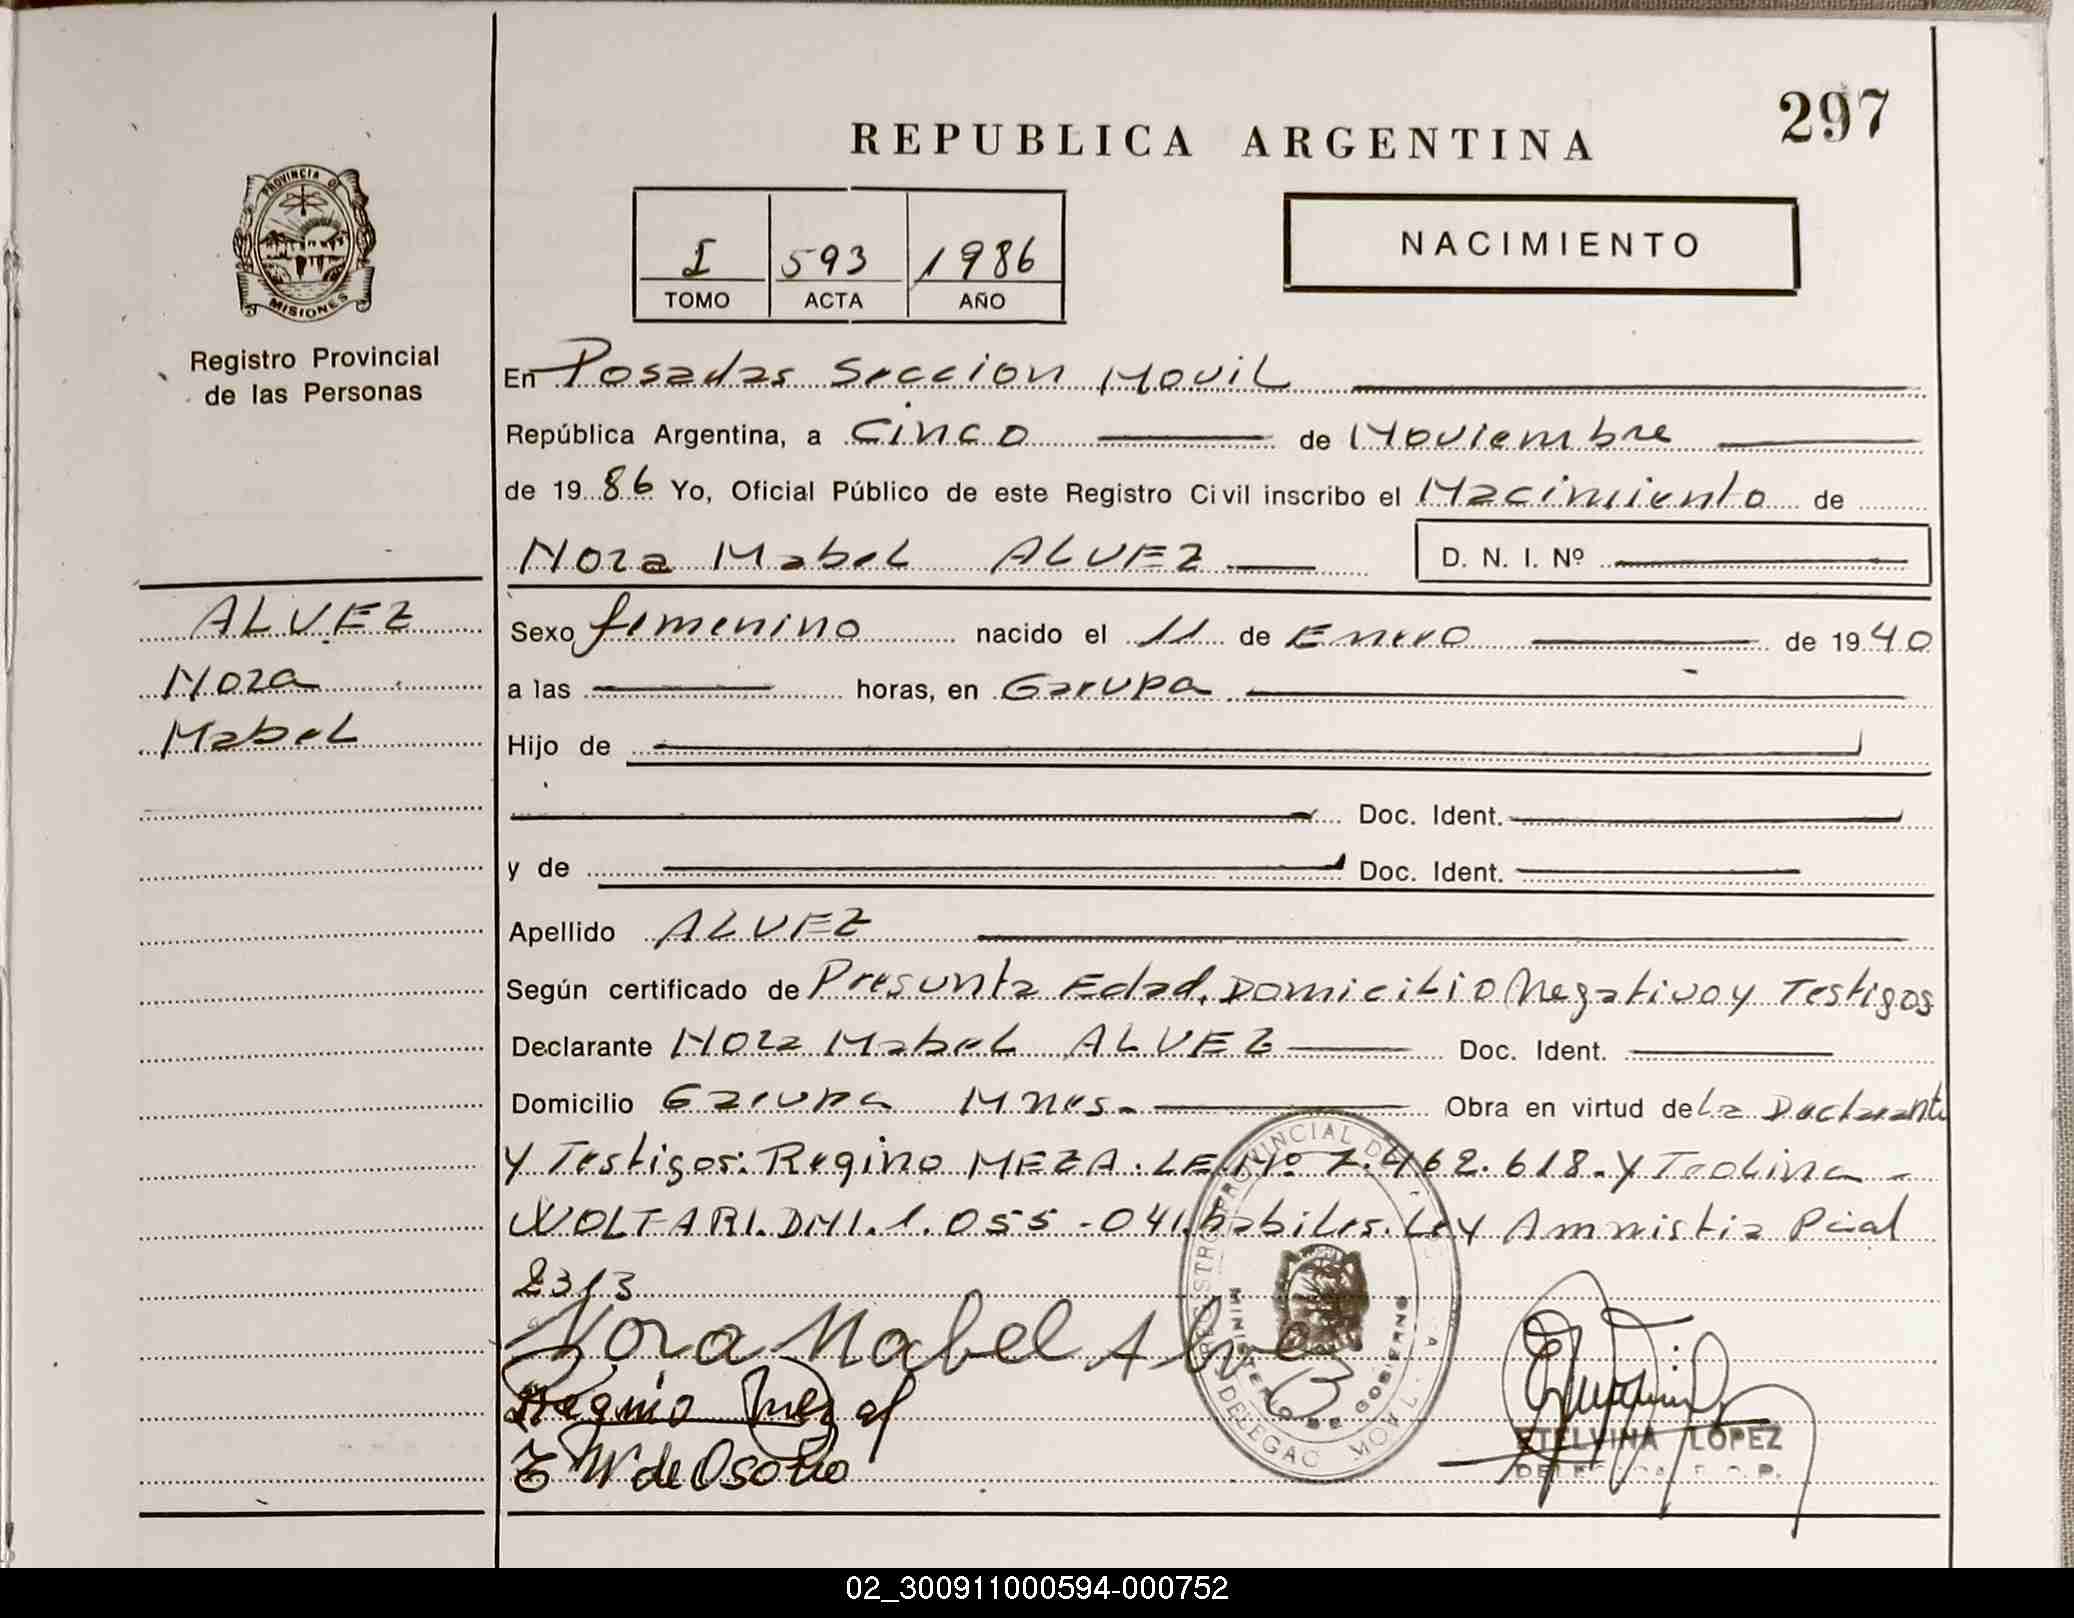 297
REPUBLICA ARGENTINA
PROVINCIA DE
MISIONES
Registro Provincial
de las Personas
I 593 1986
TOMO ACTA AÑO
NACIMIENTO
En Posadas Seccion Movil
República Argentina, a Cinco de Noviembre
de 1986 Yo, Oficial Público de este Registro Civil inscribo el Nacimiento de
Nora Mabel ALVEZ D. N. I. Nº
ALVEZ
Nora
Mabel
Sexo femenino nacido el 11 de Enero de 1940
a las horas, en Garupa
Hijo de
Doc. Ident.
y de Doc. Ident.
Apellido ALVEZ
Según certificado de Presunta Edad, Domicilio Negativo y Testigos
Declarante Nora Mabel ALVEZ Doc. Ident.
Domicilio Garupa Mnes. Obra en virtud de La Declarante
y Testigos: Regino MEZA. LE. Nº 7.462.618. y Teolina
WOLTARI. DNI. 1.055-041. habiles. Ley Amnistia Pcial
2313
Nora Mabel Alve
Regino Meza
T W de Osorio
REGISTRO PROVINCIAL DE
MINISTERIO DE GOBIERNO
DELEGAC MOVIL
ETELVINA LOPEZ
02_300911000594-000752